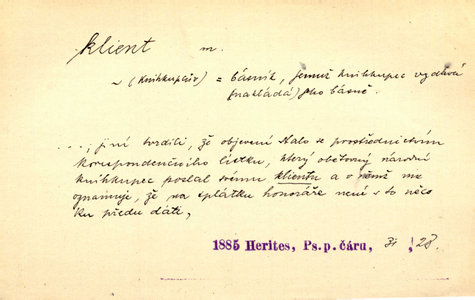 klient m.
~ (knihkupcův) = básník, jemuž knihkupec vydává
(nakládá) jeho básně.
..., jiní tvrdili, že objevení stalo se prostřednictvím
korespondenčního lístku, který obětovný národní
knihkupec poslal svému klientu a v němž mu
oznamuje, že na splátku honoráře není s to něco
ku předu dáti,
1885 Herites, Ps. p. čáru, 31, 28.